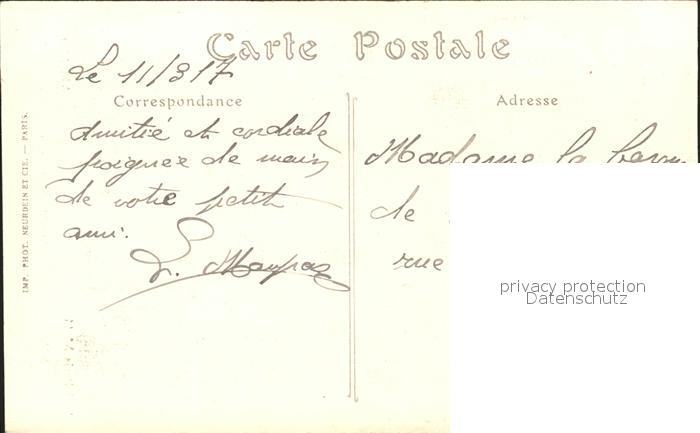 Carte Postale
Le 11/3 17
Correspondance
Adresse
Amitié et cordiale
poignee de main
de votre petit
ami.
L.
Madame la
de
rue
IMP. PHOT. NEURDEIN ET CIE. — PARIS.
privacy protection
Datenschutz